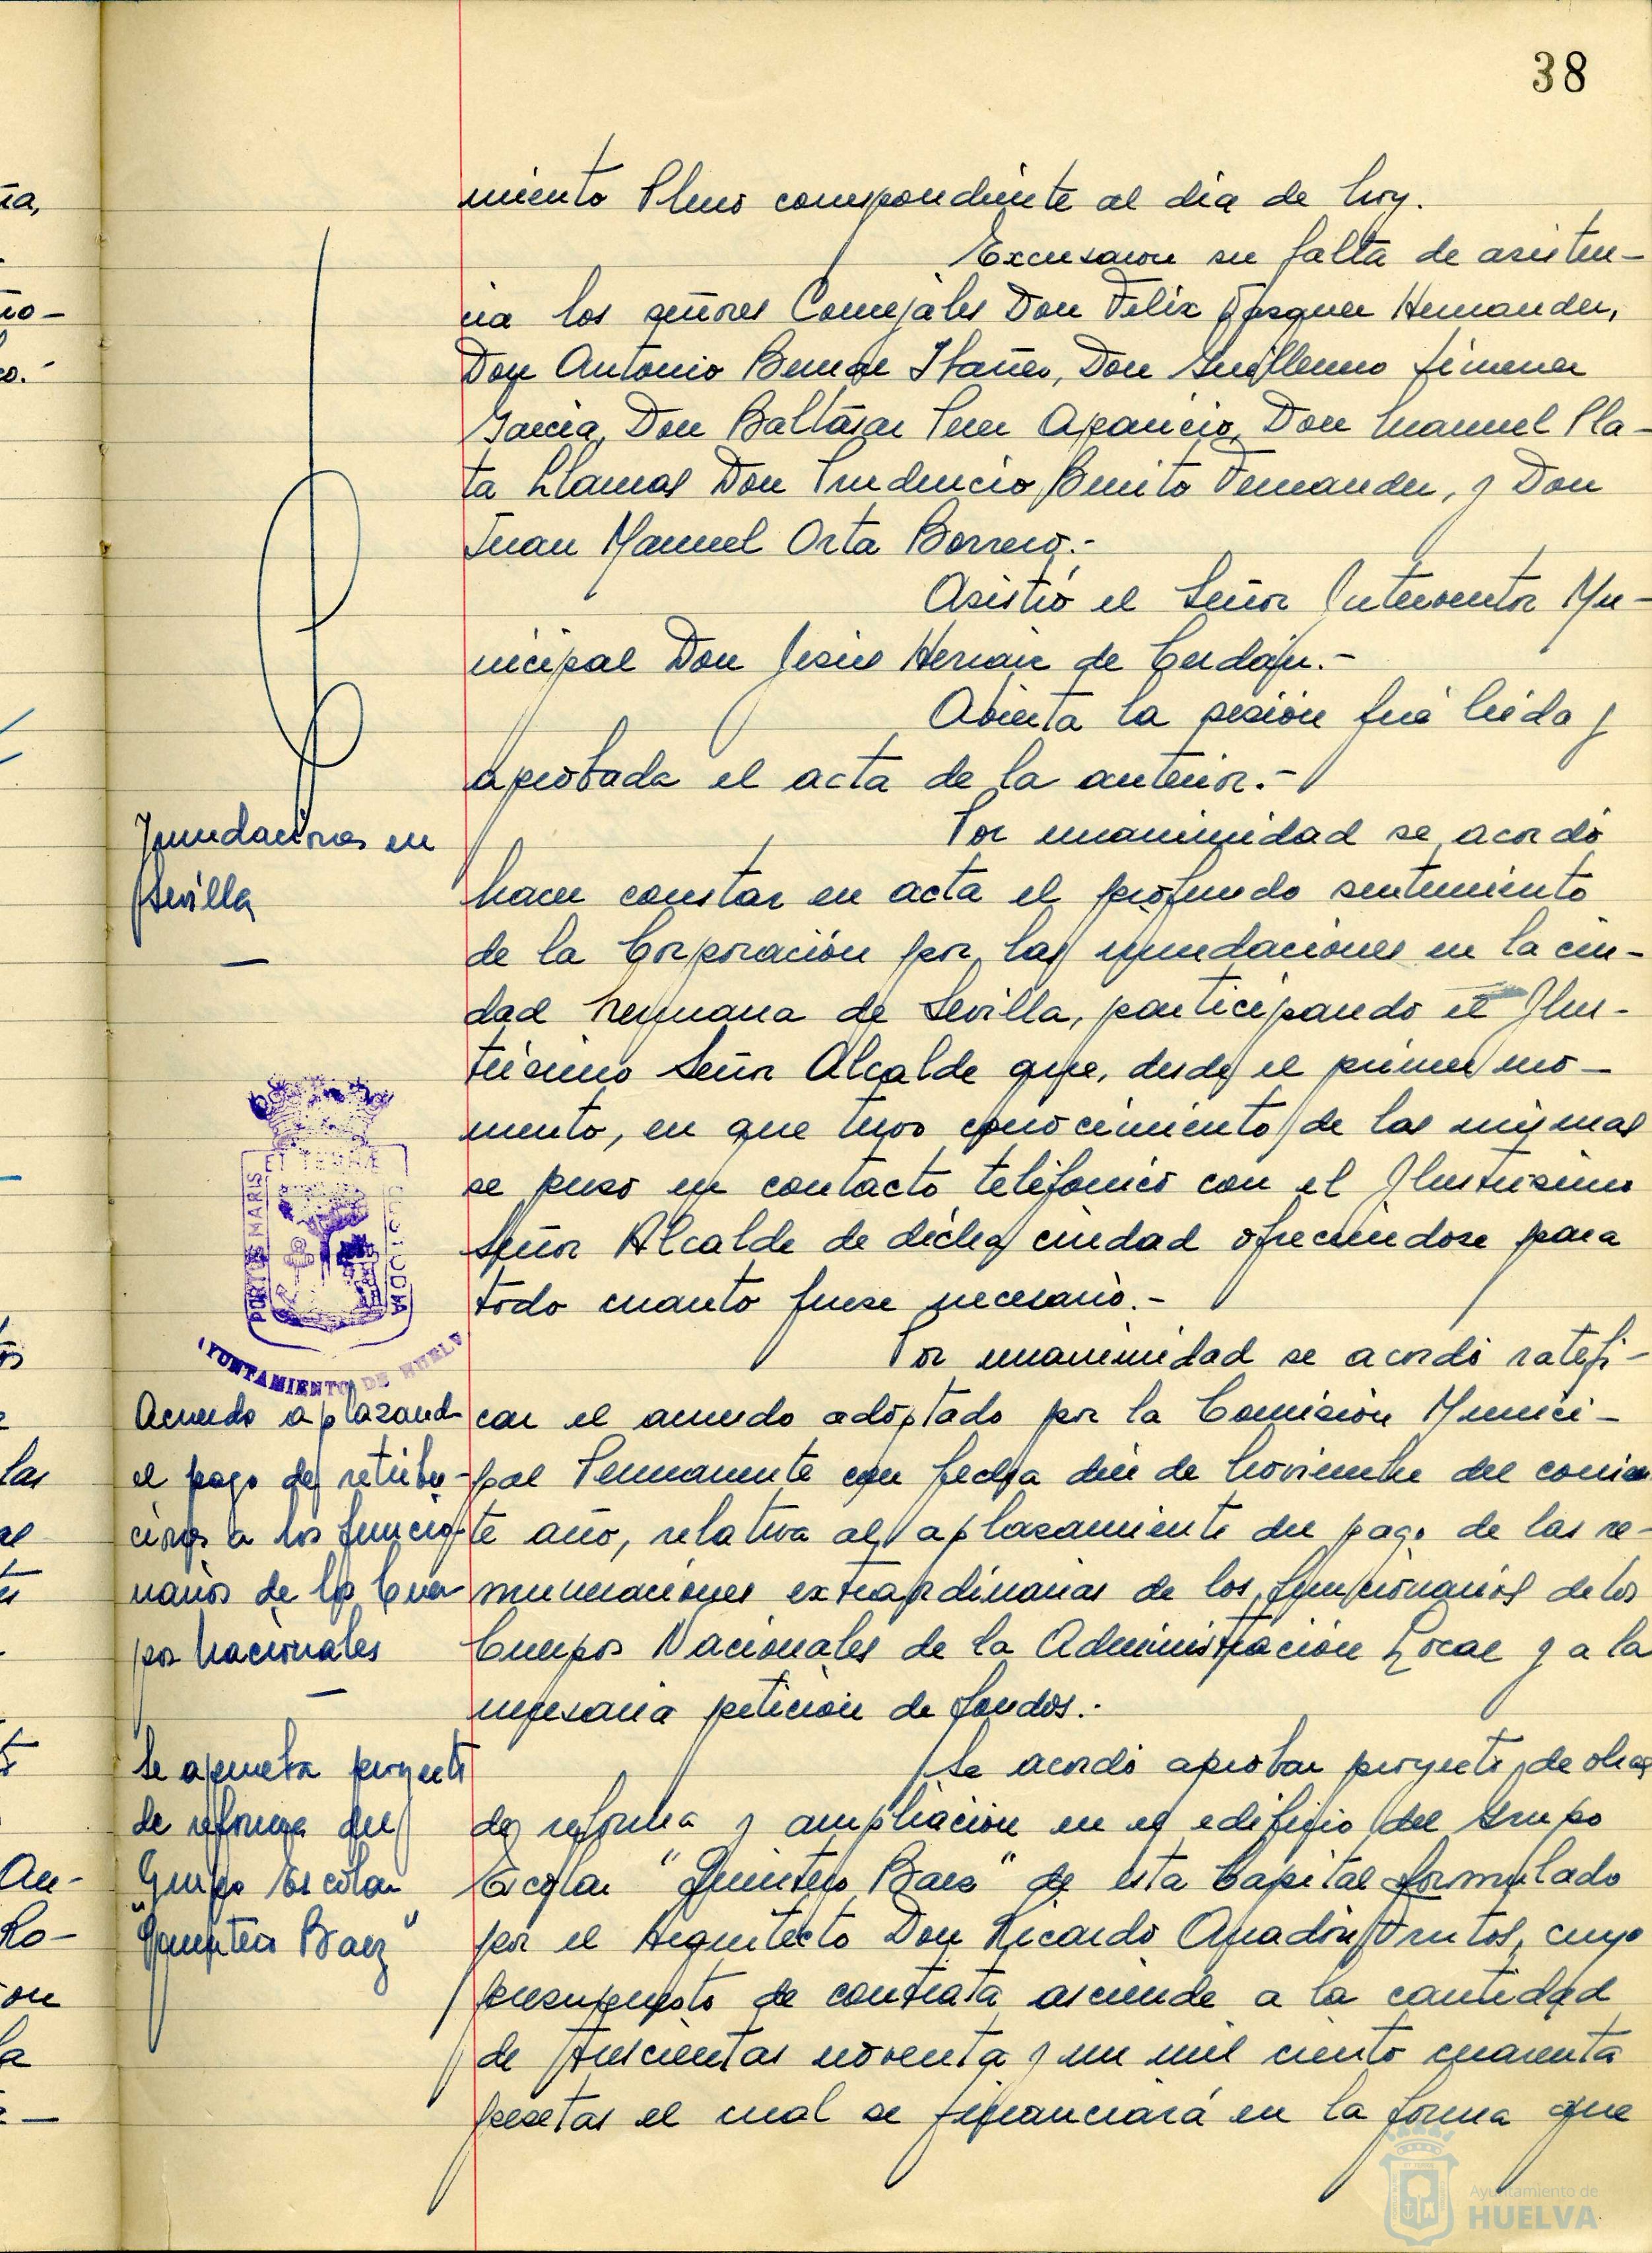 38
miento Pleno correspondiente al dia de hoy.
Excusaron su falta de asisten-
cia los señores Concejales Don Felix Vazquez Hernandez,
Don Antonio Bernal Ibañez, Don Guillermo Jimenez
Garcia, Don Baltasar Perez Aparicio, Don Manuel Pla-
ta Llamas Don Prudencio Benito Fernandez, y Don
Juan Manuel Orta Borrero.-
Asistió el Señor Interventor Mu-
nicipal Don Jesús Hernaiz de Cerdán.-
Abierta la sesión fué leida y
aprobada el acta de la anterior.-
Inundaciones en
Sevilla
Por unanimidad se acordó
hacer constar en acta el profundo sentimiento
de la Corporación por las inundaciones en la ciu-
dad hermana de Sevilla, participando el Ilus-
trisimo Señor Alcalde que, desde el primer mo-
mento, en que tuvo conocimiento de las mismas
se puso en contacto telefonico con el Ilustrisimo
Señor Alcalde de dicha ciudad ofreciendose para
todo cuanto fuese necesario.-
PORTUS MARIS ET TERRAE CUSTODIA
AYUNTAMIENTO DE HUELV
Acuerdo aplazand
el pago de retribu-
ciones a los funcio-
narios de los Cuer
pos Nacionales
Por unanimidad se acordó ratifi-
car el acuerdo adoptado por la Comisión Munici-
pal Permanente con fecha diez de Noviembre del corrien
te año, relativa al aplazamiento del pago de las re-
muneraciones extraordinarias de los funcionarios de los
Cuerpos Nacionales de la Administración Local y a la
necesaria petición de fondos.-
Se aprueba proyecto
de reforma del
Grupo Escolar
"Quintero Baez"
Se acordó aprobar proyecto de obras
de reforma y ampliación en el edificio del Grupo
Escolar "Quintero Baez" de esta Capital formulado
por el Arquitecto Don Ricardo Anadón Frutos, cuyo
presupuesto de contrata asciende a la cantidad
de trescientas noventa y un mil ciento cuarenta
pesetas el cual se financiará en la forma que
Ayuntamiento de
HUELVA